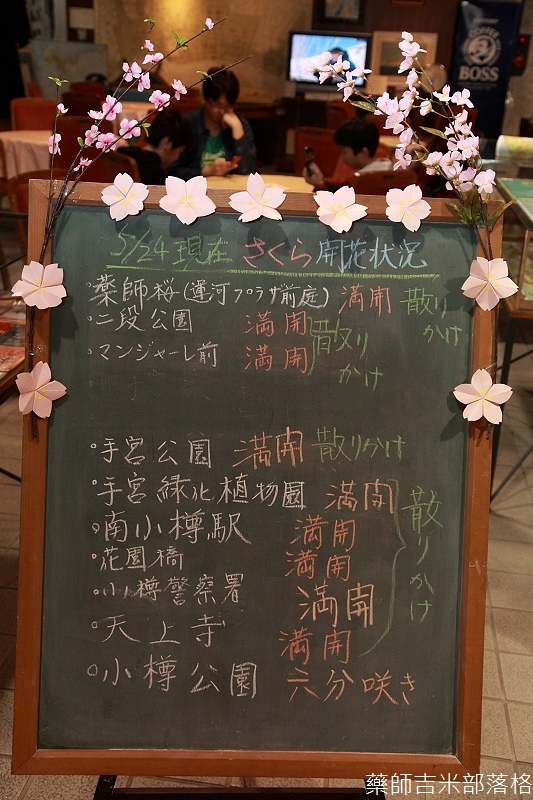 BOSS
5/24 現在 さくら 開花状況
薬師桜(運河プラザ前庭) 満開 散りかけ
二段公園 満開 散りかけ
マンジャーレ前 満開
手宮公園 満開 散りかけ
手宮緑化植物園 満開 散りかけ
南小樽駅 満開
花園橋 満開
小樽警察署 満開
天上寺 満開
小樽公園 六分咲き
藥師吉米部落格